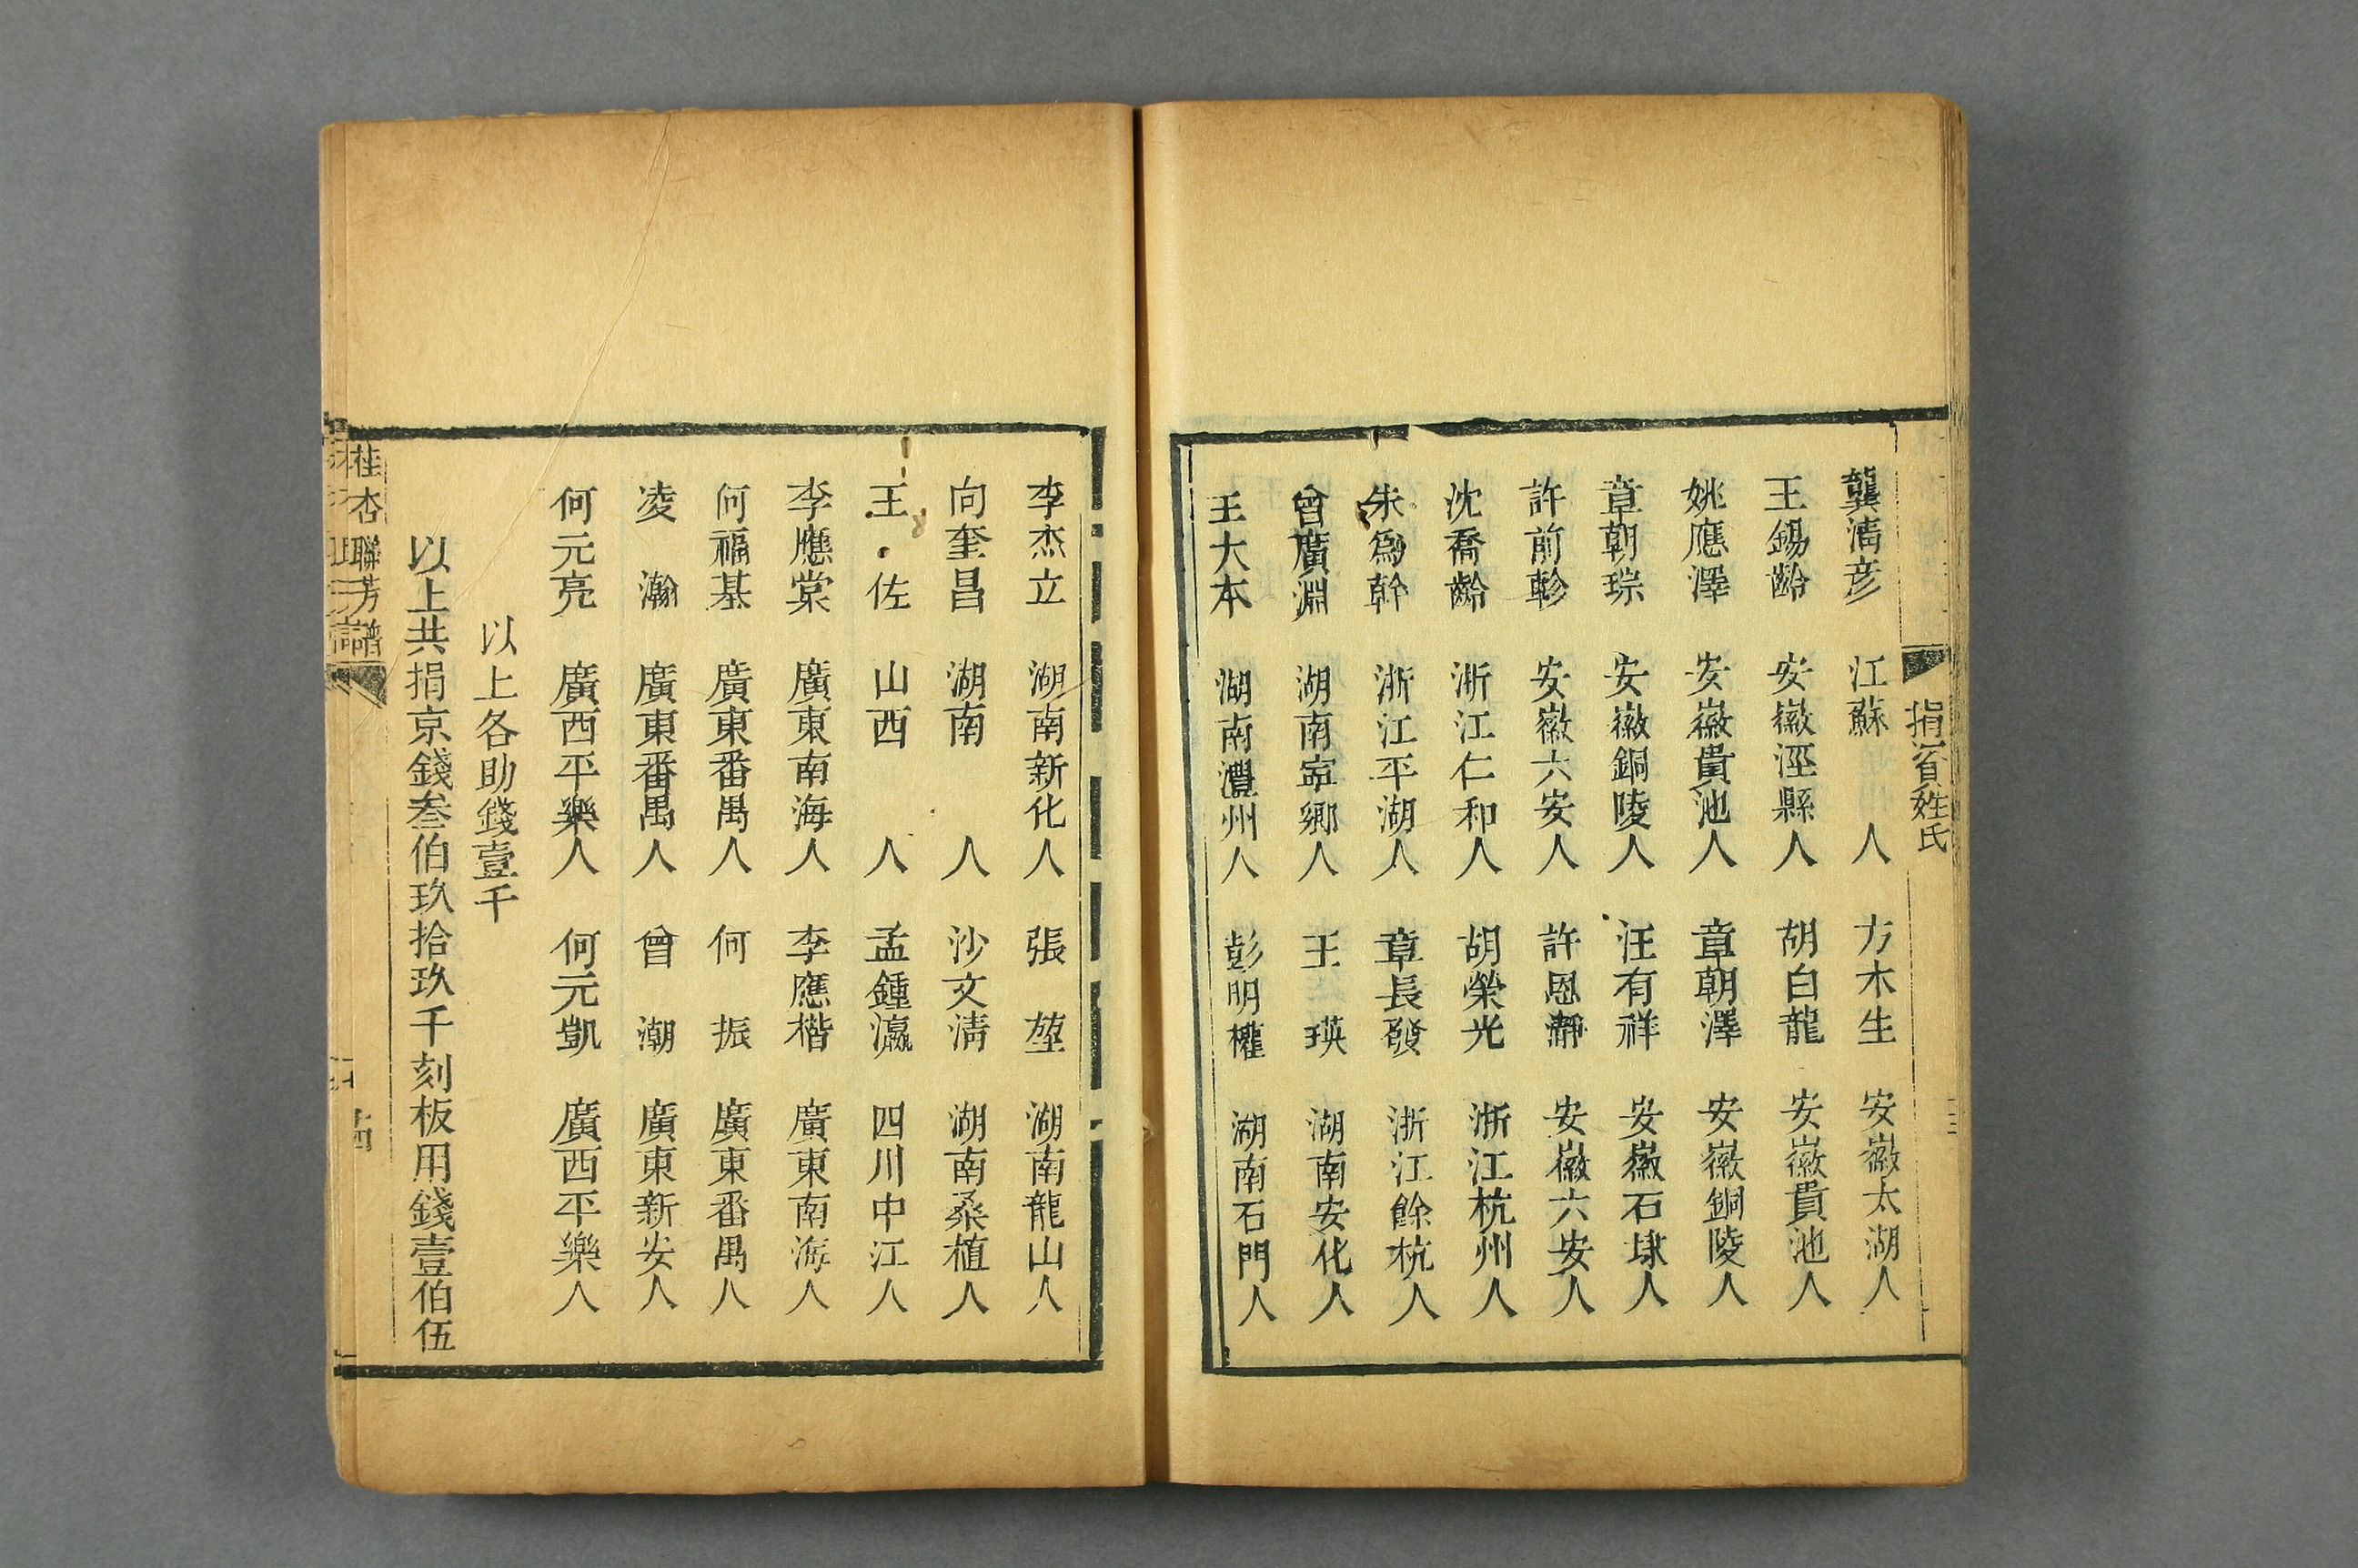 捐資姓氏
龔清彥 江蘇 人 方木生 安徽太湖人
王錫齡 安徽涇縣人 胡白龍 安徽貴池人
姚應澤 安徽貴池人 章朝澤 安徽銅陵人
章朝琮 安徽銅陵人 汪有祥 安徽石埭人
許前軫 安徽六安人 許恩 安徽六安人
沈喬齡 浙江仁和人 胡榮光 浙江杭州人
朱為幹 浙江平湖人 章長發 浙江餘杭人
曾廣淵 湖南寧鄉人 王 瑛 湖南安化人
王大本 湖南澧州人 彭明權 湖南石門人
李杰立 湖南新化人 張 堃 湖南龍山人
向奎昌 湖南 人 沙文清 湖南桑植人
王 佐 山西 人 孟鍾瀛 四川中江人
李應棠 廣東南海人 李應楷 廣東南海人
何福基 廣東番禺人 何 振 廣東番禺人
凌 瀚 廣東番禺人 曾 潮 廣東新安人
何元亮 廣西平樂人 何元凱 廣西平樂人
以上各助錢壹千
以上共捐京錢叁伯玖拾玖千刻板用錢壹伯伍
桂杏聯芳譜